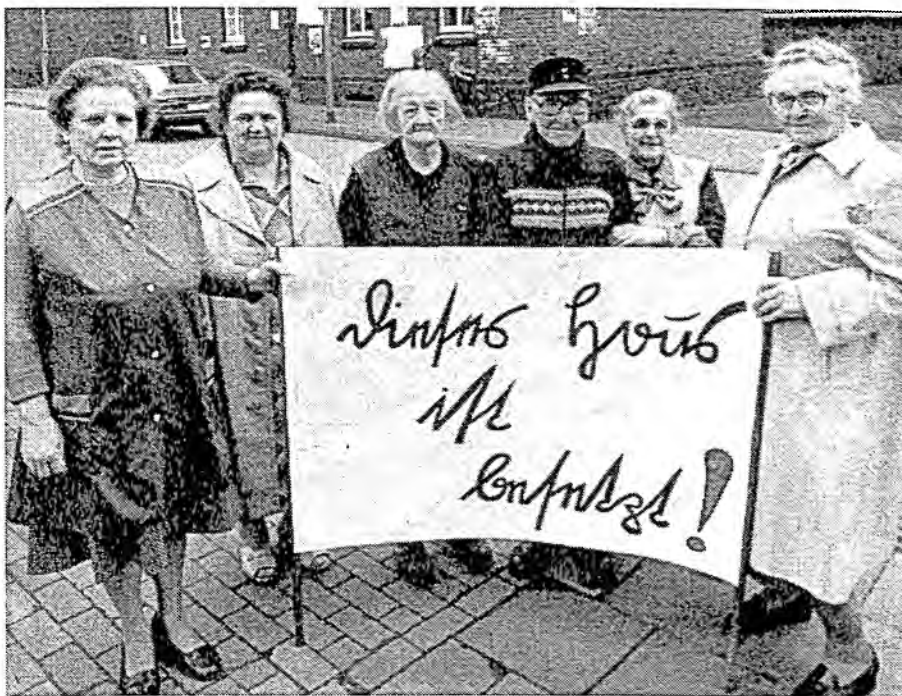 Dieses Haus
ist
besetzt!